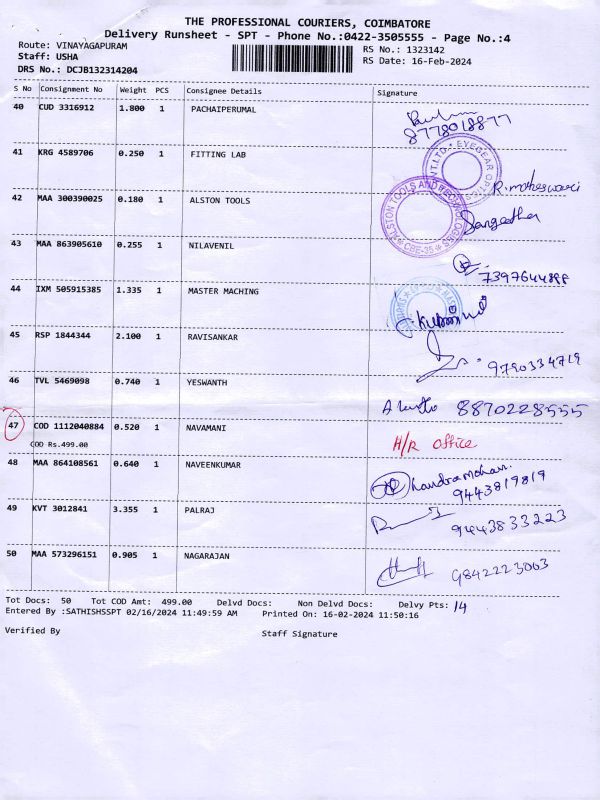 THE PROFESSIONAL COURIERS, COIMBATORE
Delivery Runsheet - SPT - Phone No.:0422-3505555 - Page No.:4
Route: VINAYAGAPURAM
Staff: USHA
DRS No.: DCJB132314204
RS No.: 1323142
RS Date: 16-Feb-2024
S No Consignment No Weight PCS Consignee Details Signature
40 CUD 3316912 1.800 1 PACHAIPERUMAL
8778018877
41 KRG 4589706 0.250 1 FITTING LAB
R.matheswari
42 MAA 300390025 0.180 1 ALSTON TOOLS
Sangeetha
43 MAA 863905610 0.255 1 NILAVENIL
44 IXM 505915385 1.335 1 MASTER MACHING
45 RSP 1844344 2.100 1 RAVISANKAR
9790334719
46 TVL 5469098 0.740 1 YESWANTH
8870228555
47 COD 1112040884 0.520 1 NAVAMANI H/R office
COD Rs.499.00
48 MAA 864108561 0.640 1 NAVEENKUMAR
Chandramohan.
9443819819
49 KVT 3012841 3.355 1 PALRAJ
9443833223
50 MAA 573296151 0.905 1 NAGARAJAN
9842223063
Tot Docs: 50 Tot COD Amt: 499.00 Delvd Docs: Non Delvd Docs: Delvy Pts: 14
Entered By :SATHISHSSPT 02/16/2024 11:49:59 AM Printed On: 16-02-2024 11:50:16
Verified By Staff Signature